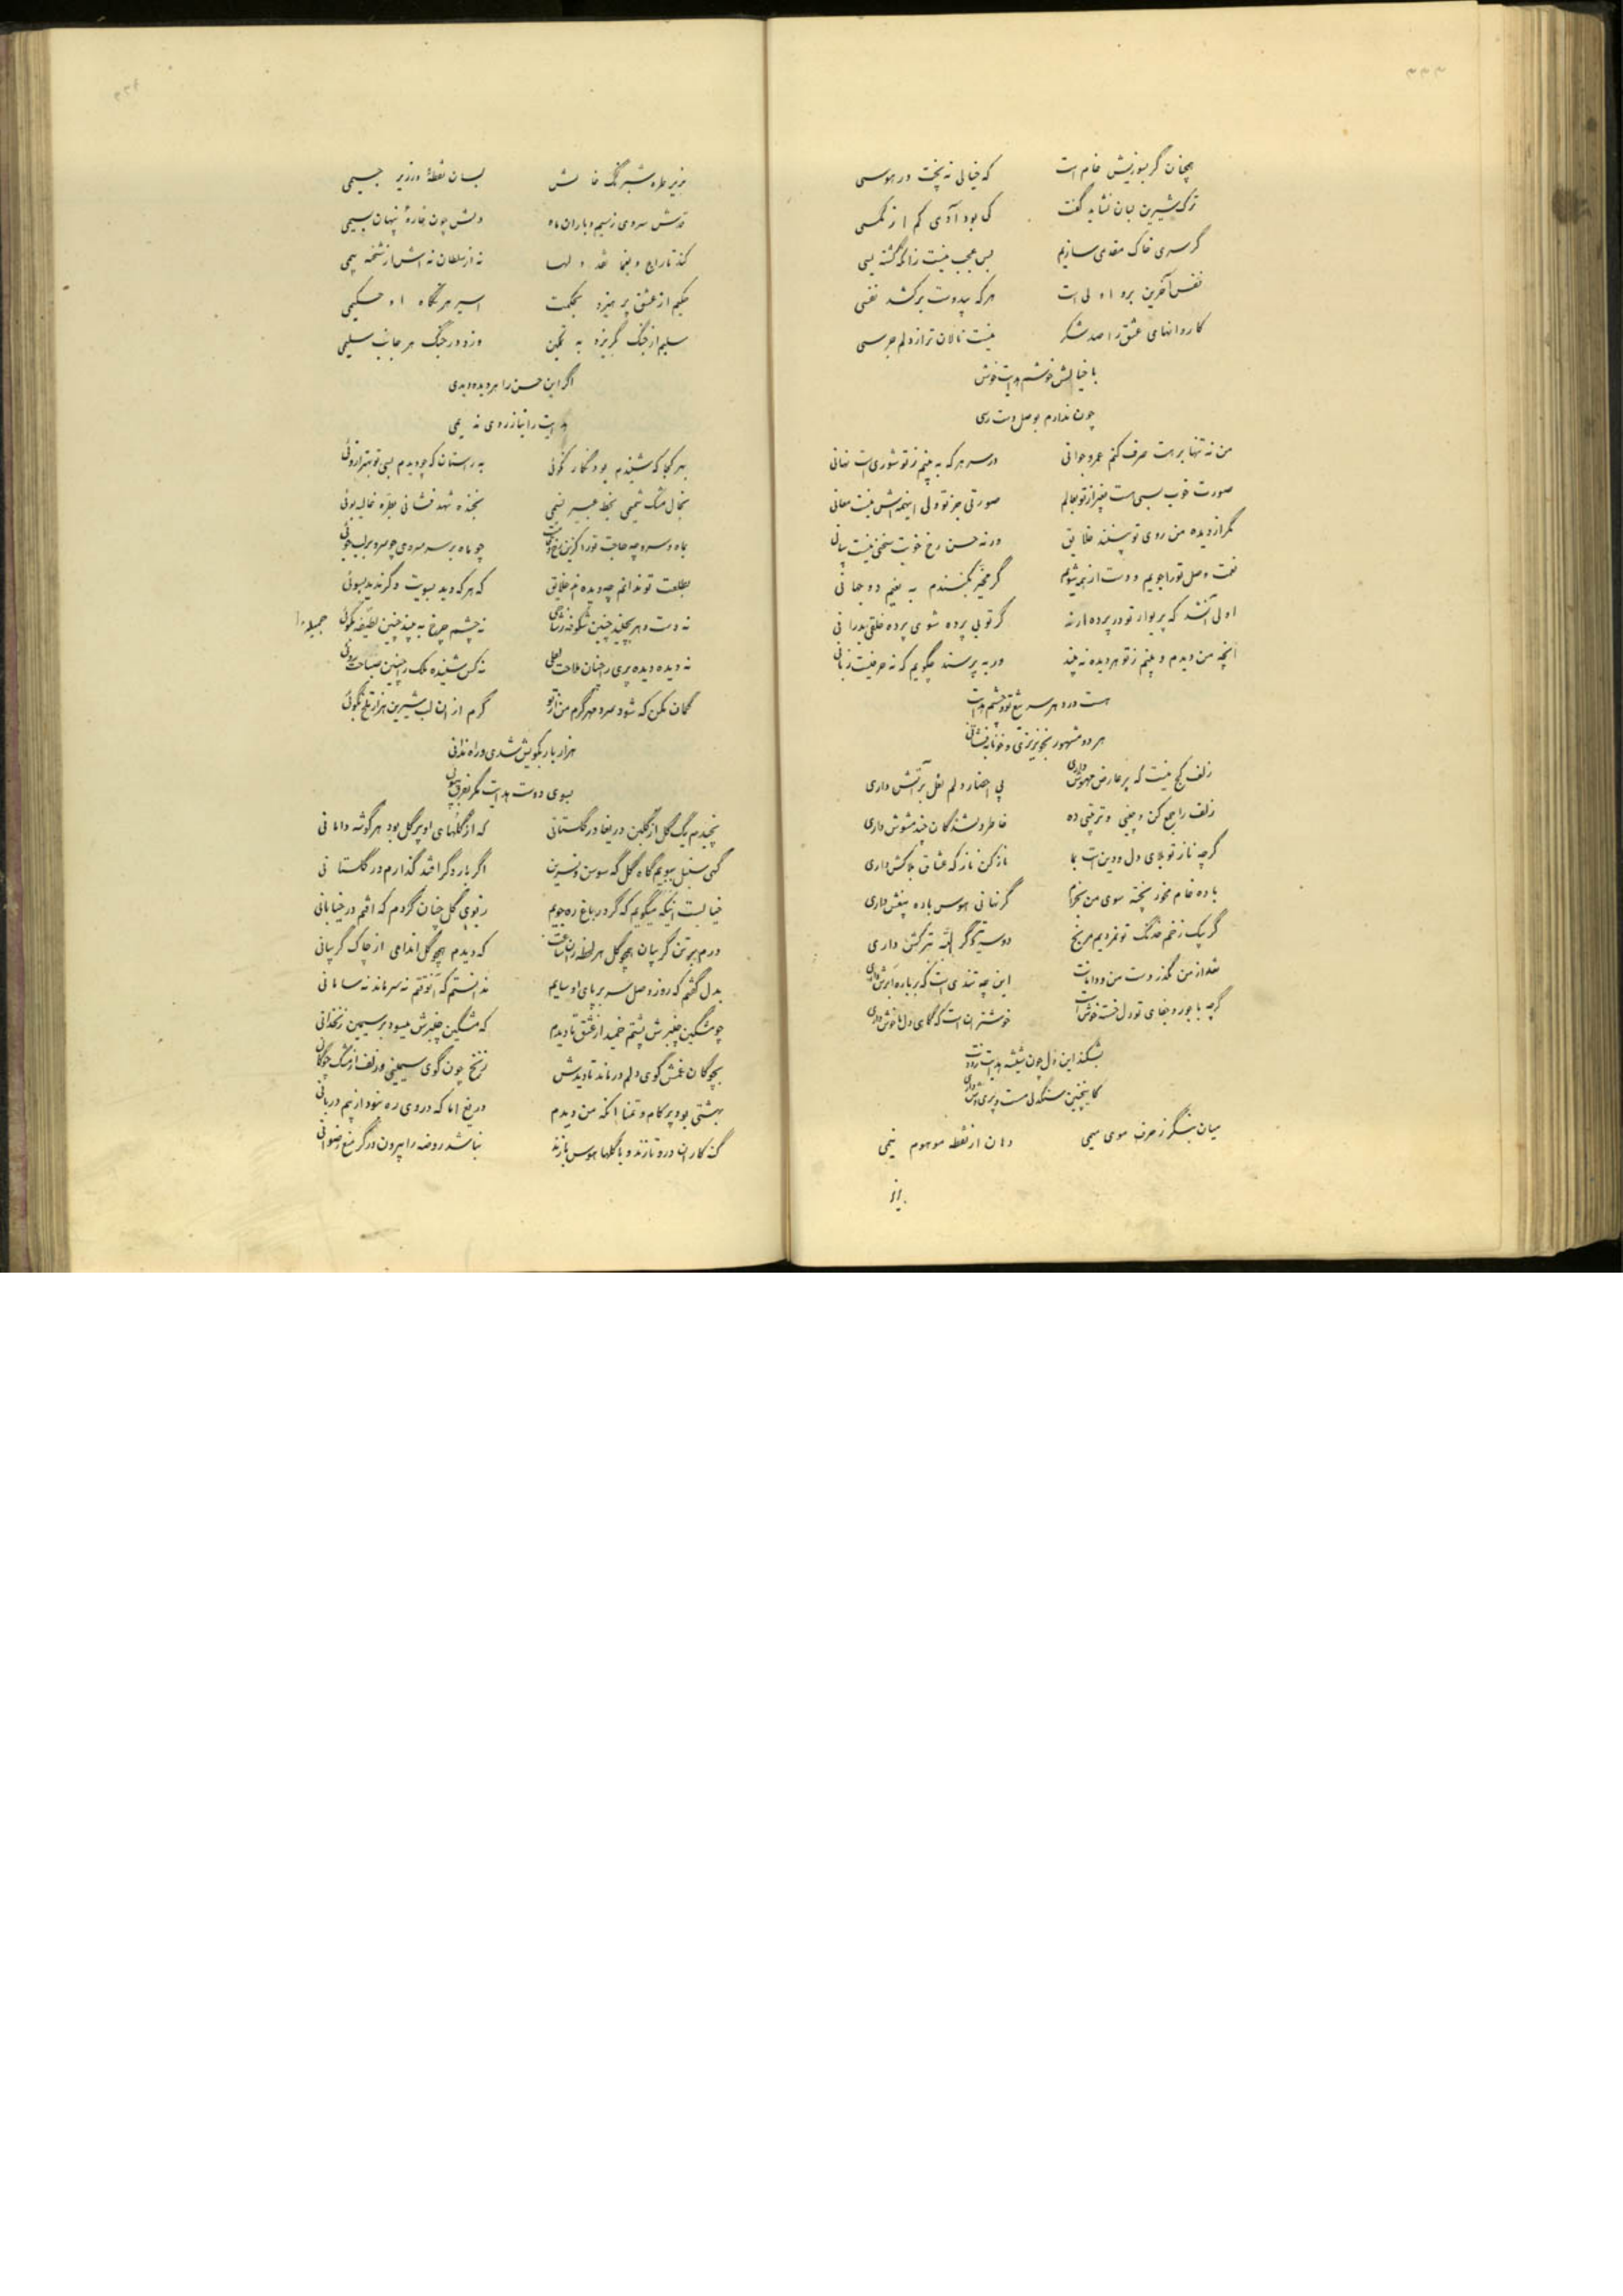 ۳۳۳
همچنان گر بسوزیش خام است که خیالی نه پخت در هوسی
ترک شیرین لبان نشاید گفت کی بود آدمی کم از مگسی
گر سری خاک مقدمی سازیم بس عجب نیست زانکه گشته بسی
نفس آخرین برو اولی است هر که بیدوست برکشد نفسی
کاروانهای عشق را صد شکر نیست نالان تر از دلم جرسی
با خیالش خوشم هدایت خوش
چون ندارم بوصل دست رسی
من نه تنها برهت صرف کنم عمر و جوانی در سر هر که به بینم ز تو شوری است نهانی
صورت خوب بسی هست بغیر از تو بعالم صورتی جز تو ولی اینهمه‌اش نیست معانی
مگر از دیده من روی تو بینند خلایق ورنه حسن رخ خوبت سخنی نیست بیانی
نعمت وصل تو را جویم و دست از همه شویم گر مخیر بکنندم به نعیم دو جهانی
اولی آنشد که پریوار تو در پرده در گر تو بی پرده شوی پرده خلقی بدرانی
آنچه من دیدم و بینم ز تو هر دیده نه بیند ور به پرسند چگویم که نه حرفیست زبانی
هست در دهر سر تیغ تو و چشم هدایت
هر دو مشهور بخونریزی و خونابه فشانی
زلف کج نیست که بر عارض مهوش داری پی احضار دلم نعل بر آتش داری
زلف را جمع کن و چینی و ترتیبی ده خاطر دلشدگان چند مشوش داری
گرچه ناز تو بلای دل و دین است بما ناز کن ناز که عشاق بلاکش داری
باده خام مخور پخته سوی من بخرام گر نهانی هوس باده بیغش داری
گر بیک زخم خدنگ تو نمردیم مرنج دو سه تیر دگر البته بترکش داری
بعد از من مگذر دست من و دامانت این چه تندی است که بر باره ابرش داری
گرچه با جور و جفای تو دل خسته خوش است خوشتر آن است که گاهی دل ما خوش داری
بشکند این دل چون شیشه هدایت زدست
کاینچنین سنگدلی مست و پریوش داری
میان بنگر ز حرف موی میمی دهان از نقطه موهوم نیمی
بزیر
بزیر طره شبرنگ خالش بسان نقطه در زیر جیمی
تنش سروی ز سیم و باران ماه دلش چون خاره پنهان بسیمی
کند تاراج و یغما نقد دلها نه از سلطان نه اش از شحنه بیمی
حکیم از عشق پرهیزد بحکمت اسیر هر نگاه او حکیمی
سلیم از جنگ گریزد به تمکین وزو در جنگ هر جانب سلیمی
اگر این حسن را هر دیده دیدی
هدایت را نیازردی ندیمی
بهر کجا که شنیدم بود نگار نکوئی به راستان که چو دیدم بسی تو بهتر ازوئی
بخال مشک شمیمی بخط عبیر نسیمی بخنده شهد فشانی بطره غالیه بوئی
بماه و سرو چه حاجت تو را کزین باغ چو ماه بر سر سروی چو سرو بر لب جوئی
بطلعت تو ندانم چه دیده‌اند خلایق که هر که دید بسویت دگر ندید بسوئی
نه دست دهر بچیند چنین شکوفه ز شاخی نه چشم چرخ به بیند چنین لطیفه بکوئی جمیله
نه دیده دیده پری را چنان ملاحت لعلی نه کس شنیده ملک را چنین صباحت روئی
گمان مکن که شود سرد مهر گرم من از تو گرم از آن لب شیرین هزار تلخ بگوئی
هزار بار بکویش شدی و راه ندانی
بسوی دوست هدایت مگر بعرف بپوئی
نچیدم یک گل از گلبن دریغا در گلستانی که از گلهای او پر گل بود هر گوشه دامانی
گهی سنبل ببویم گاه گل گه سوسن و نسرین اگر بار دگر افتد گذارم در گلستانی
خیالست اینکه میگویم که گر در باغ ره جویم ز بوی گل چنان گردم که افتم در خیابانی
درم بر تن گریبان همچو گل هر لحظه زان ساعت که دیدم همچو گل اندامی از چاک گریبانی
بدل گفتم که روز وصل سر بر پای او سایم ندانستم که آنوقتم نه سر ماند نه سامانی
چو مشکین چنبرش پشتم خمید از عشق تا دیدم که مشکین چنبرش میسود بر سیمین زنخدانی
بچوگان غمش گوی دلم درماند تا دیدش زنخ چون گوی سیمینی و زلف از مشک چوگانی
بهشتی بود پر کام و تمنا آنکه من دیدم دریغ اما که در وی ره نبود از بیم دربانی
گنه کاران درو تازند و با گلها هوس بازند نباشد روضه را بیرون در گر منع رضوانی